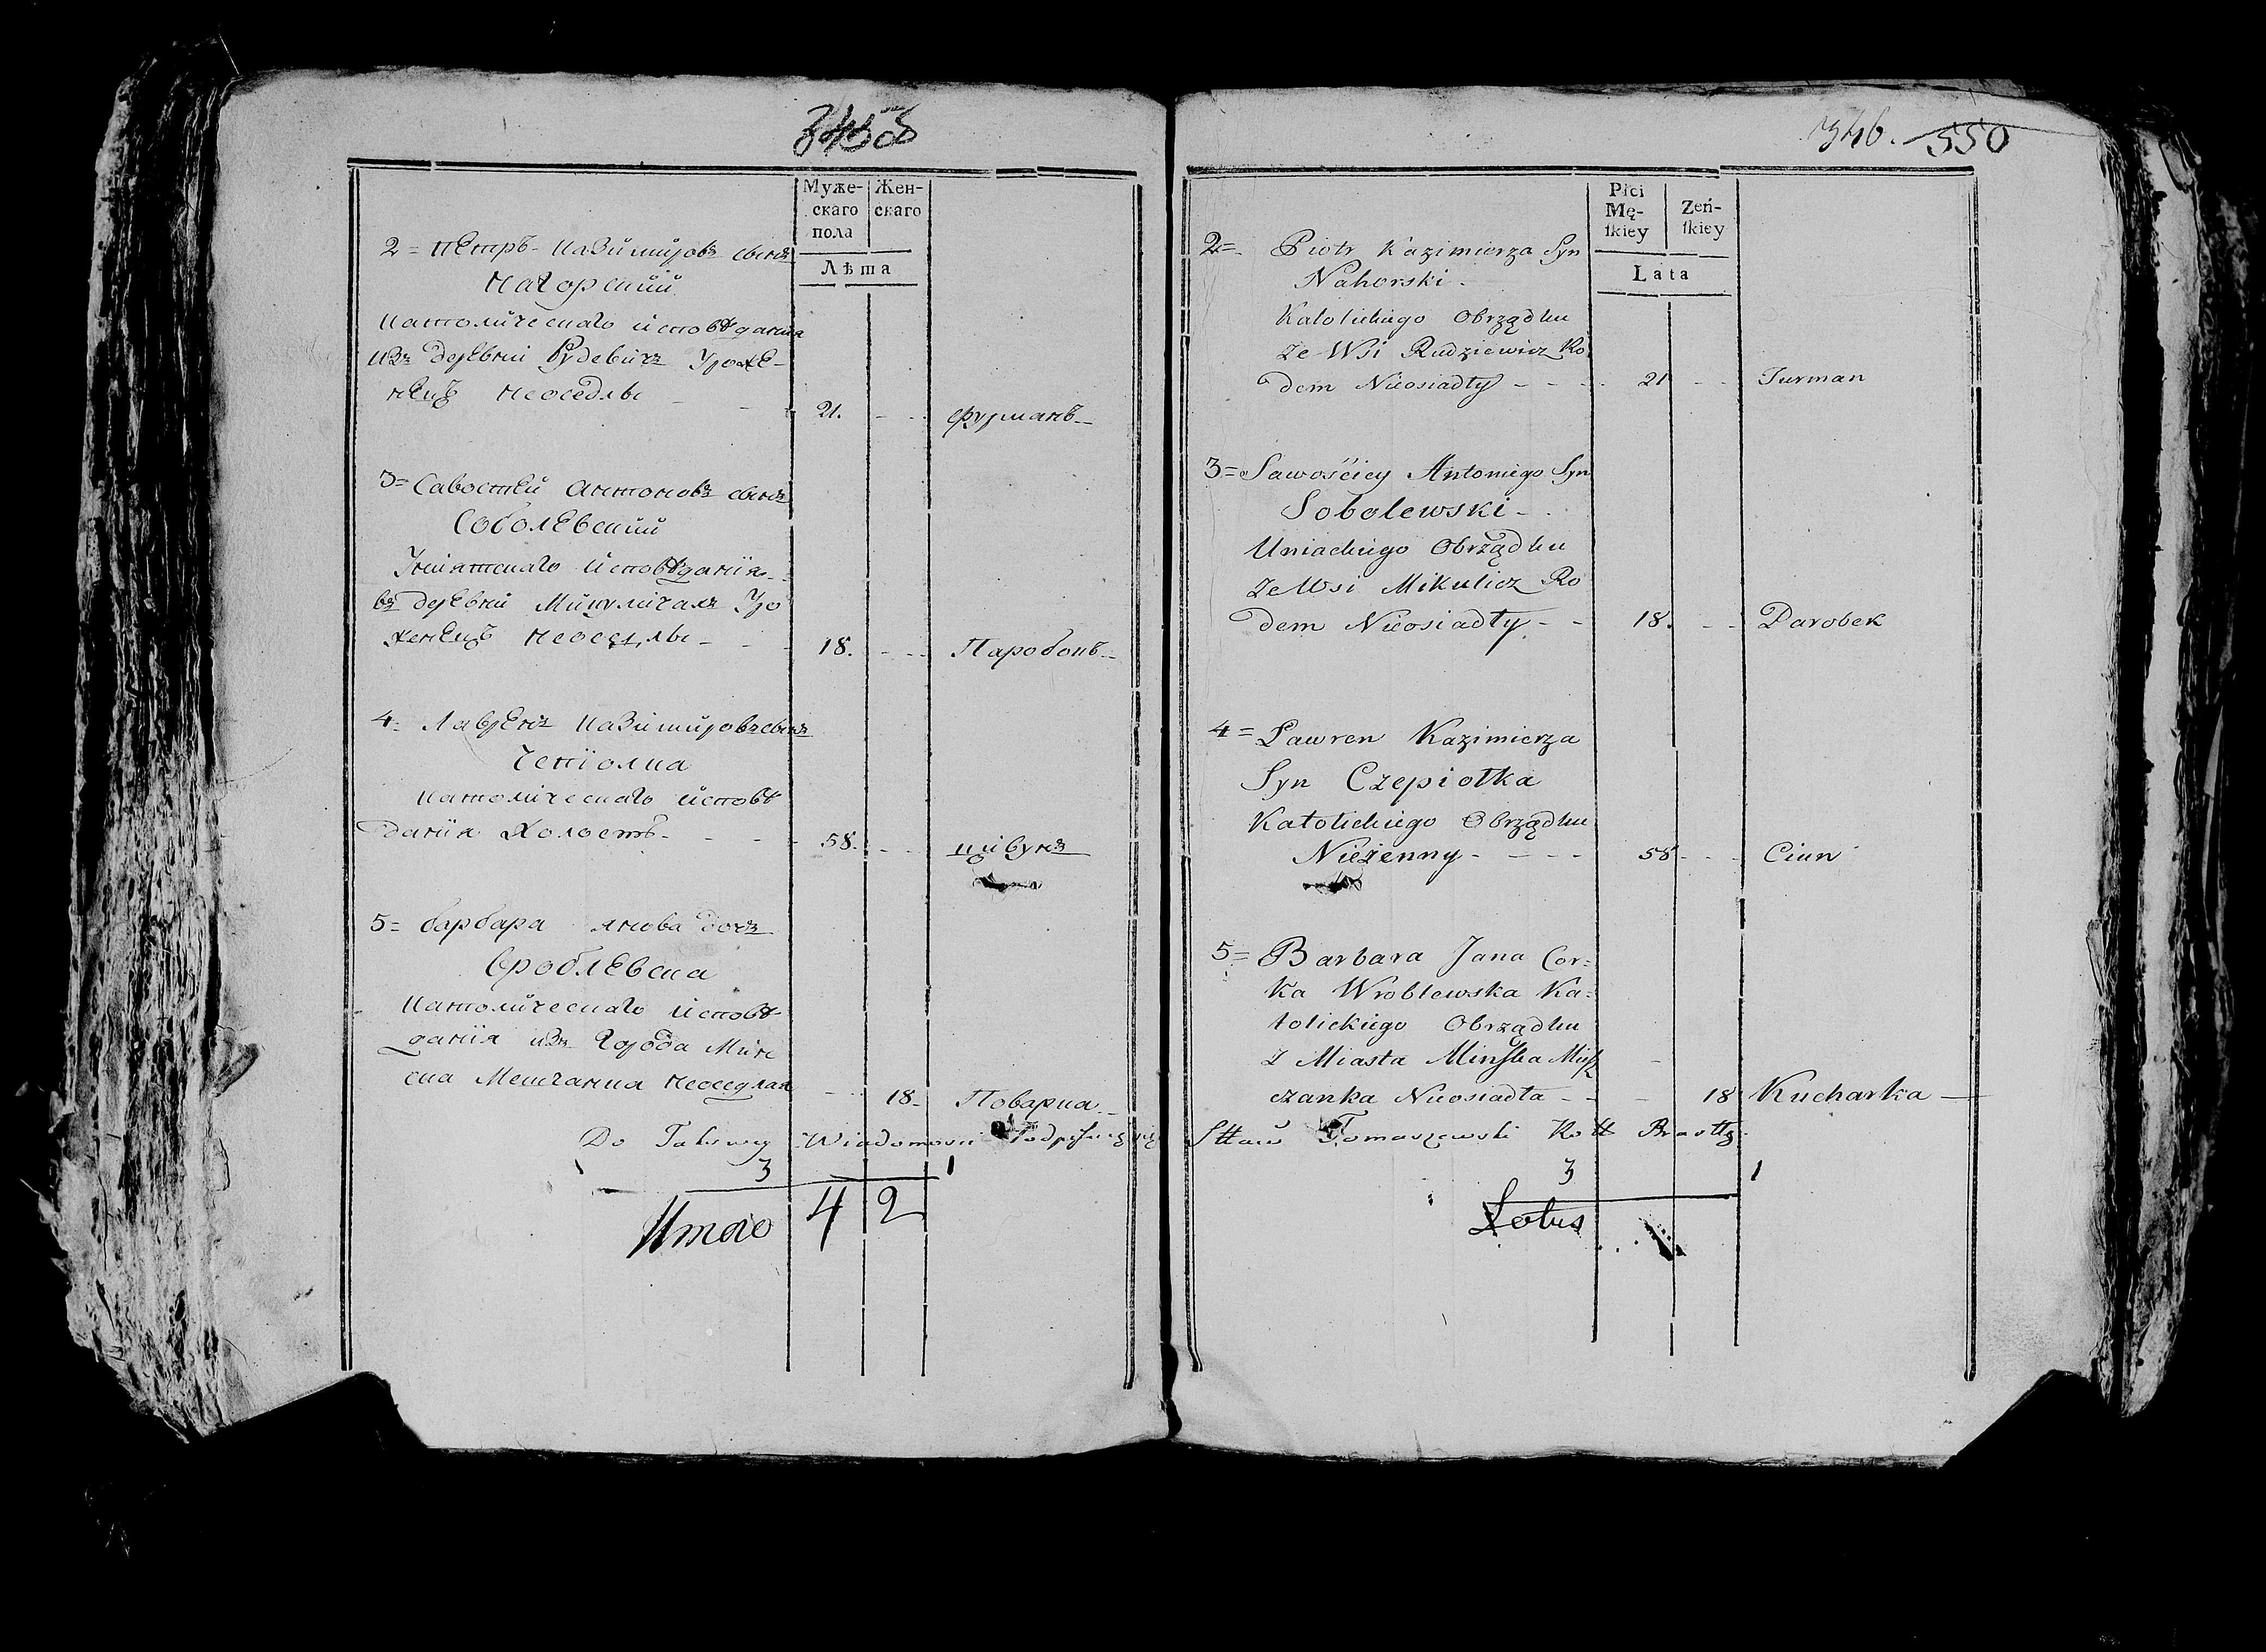 345об
Муже-
скаго
пола
Жен-
скаго
Лѣта
2 = Петръ Казимировъ сынъ
Нагорский
Католическаго исповѣдания
изъ деревни Рудевичъ Уроже-
нецъ неоседлы - - - 21. - - фурманъ -
3 = Савостей Антоновъ сынъ
Соболевский
Униятскаго исповѣдания -
въ деревни Микуличахъ Уро
женецъ неоседлы - - - 18. - - Паробокъ -
4 = Лавренъ Казимировъ сынъ
Чепiолка
католическаго исповѣ
дания Холостъ - - - 58. - - цивунъ
5 = барбара янова дочъ
Вроблевска
католическаго исповѣ-
дания изъ города Мин
ска Мещчанка неоседлая - - 18 - Поварка -
Do Takowey Wiadomości Podpisuję się
3 1
Итого 4 2
346. 550
Płci
Mę-
ſkiey
Żeń-
ſkiey
Lata
2 = Piotr Kazimierza Syn
Nahorski -
Katolickiego Obrządku
ze Wsi Rudziewicz Ro
dem Nieosiadły - - - 21 - - Furman
3 = Sawościey Antoniego Syn
Sobolewski -
Uniackiego Obrządku
ze Wsi Mikulicz Ro
dem Nieosiadły - - 18. - - Parobek
4 = Lawren Kazimierza
Syn Czepiołka
Katolickiego Obrządku
Nieżenny - - - - 58 - - Ciun
5 = Barbara Jana Cor=
ka Wroblewska Ka=
tolickiego Obrządku
z Miasta Mińska Miesz
czanka Nieosiadła - - - 18 Kucharka -
Tomaszewski
3 1
Lotus